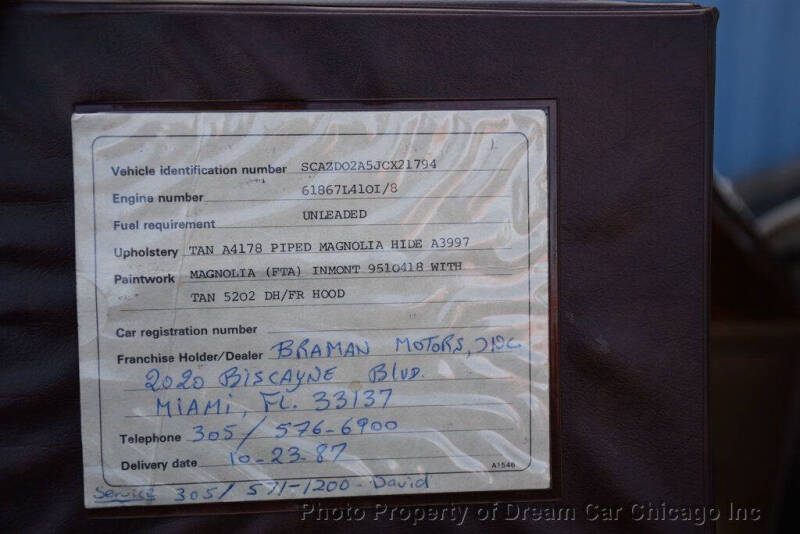 Vehicle identification number SCAZDO2A5JCX21794
Engine number 61867L41OI/8
Fuel requirement UNLEADED
Upholstery TAN A4178 PIPED MAGNOLIA HIDE A3997
Paintwork MAGNOLIA (FTA) INMONT 951o418 WITH
TAN 52O2 DH/FR HOOD
Car registration number
Franchise Holder/Dealer BRAMAN MOTORS, INC
2020 BISCAYNE BLVD.
MIAMI, FL. 33137
Telephone 305/ 576-6900
Delivery date 10-23-87
A1546
Service 305/ 571-1200 - David
Photo Property of Dream Car Chicago Inc